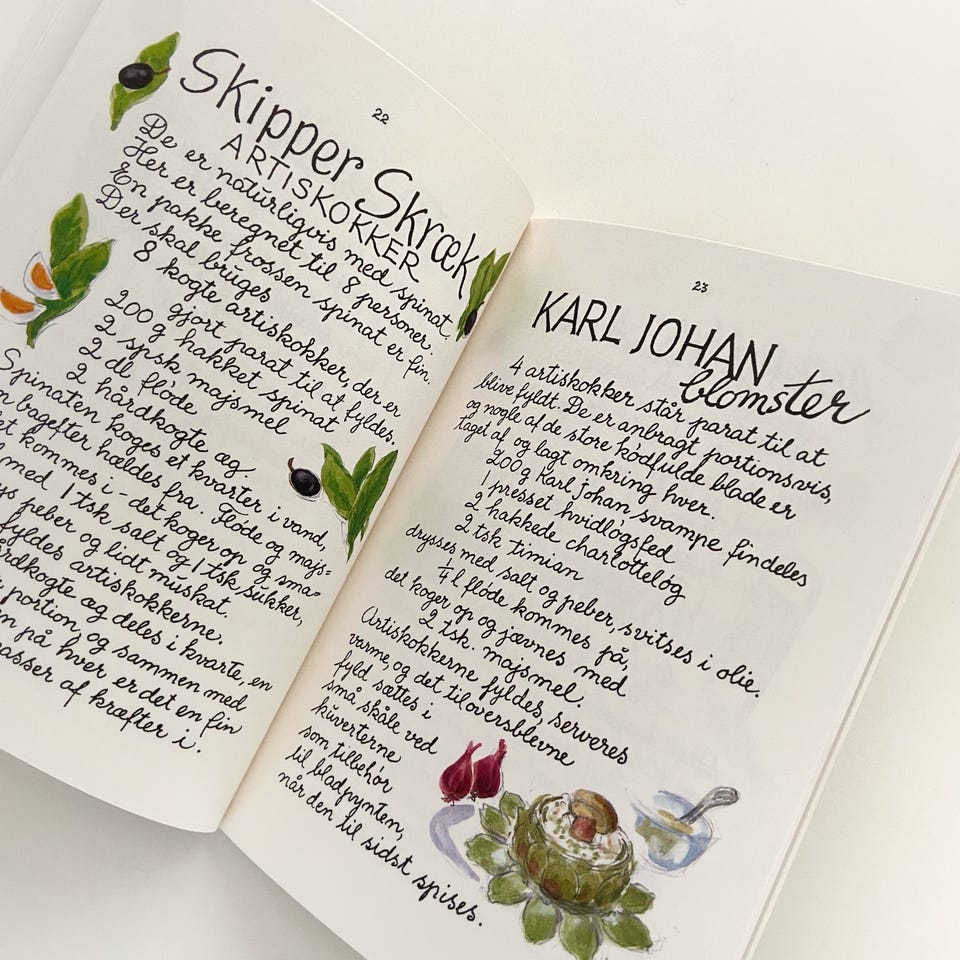 22
Skipper Skræk
ARTISKOKKER
De er naturligvis med spinat.
Her er beregnet til 8 personer.
En pakke frossen spinat er fin.
Der skal bruges
8 kogte artiskokker, der er
gjort parat til at fyldes.
200 g hakket spinat
2 spsk majsmel
2 dl fløde
2 hårdkogte æg
Spinaten koges et kvarter i vand,
bagefter hældes fra. Fløde og majs-
kommes i - det koger op og sma-
med 1 tsk salt og 1 tsk sukker,
peber og lidt muskat.
fyldes artiskokkerne.
æg deles i kvarte, en
portion, og sammen med
på hver er det en fin
af kræfter i.
23
KARL JOHAN
blomster
4 artiskokker står parat til at
blive fyldt. De er anbragt portionsvis,
og nogle af de store kødfulde blade er
taget af og lagt omkring hver.
200g Karl Johan svampe findeles
1 presset hvidløgsfed
2 hakkede charlotteløg
2 tsk timian
drysses med salt og peber, svitses i olie.
¼ l fløde kommes på,
det koger op og jævnes med
2 tsk. majsmel.
Artiskokkerne fyldes, serveres
varme, og det tiloversblevne
fyld sættes i
små skåle ved
kuverterne
som tilbehør
til bladpynten,
når den til sidst spises.